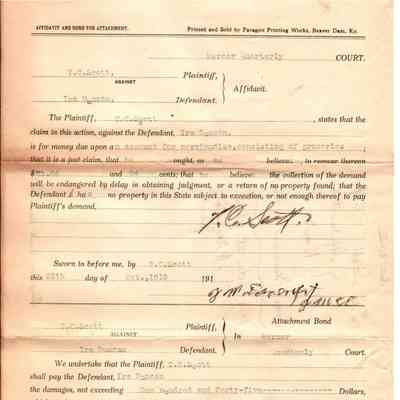 AFFIDAVIT AND BOND FOR ATTACHMENT. Printed and Sold by Paragon Printing Works, Beaver Dam, Ky.
Mercer Quarterly COURT.
T.C.Scott, Plaintiff,
AGAINST Affidavit.
Ira Duncan. Defendant.
The Plaintiff, T.C.Scott , states that the
claim in this action, against the Defendant, Ira Duncan.
is for money due upon an account for merchandise, consisting of groceries ;
that it is a just claim, that he ought, as he believes, to recover thereon
and cents; that he believes the collection of the demand
will be endangered by delay in obtaining judgment, or a return of no property found; that the
Defendant has no property in this State subject to execution, or not enough thereof to pay
Plaintiff's demand.
T.C. Scott.
Sworn to before me, by T.C.Scott
this 28th day of Oct.,1910 191
T.C.Scott Plaintiff, Attachment Bond
AGAINST In Mercer
Ira Duncan Defendant. Quarterly Court.
We undertake that the Plaintiff, T.C.Scott
shall pay the Defendant, Ira Duncan
the damages, not exceeding One Hundred and Forty-five Dollars,